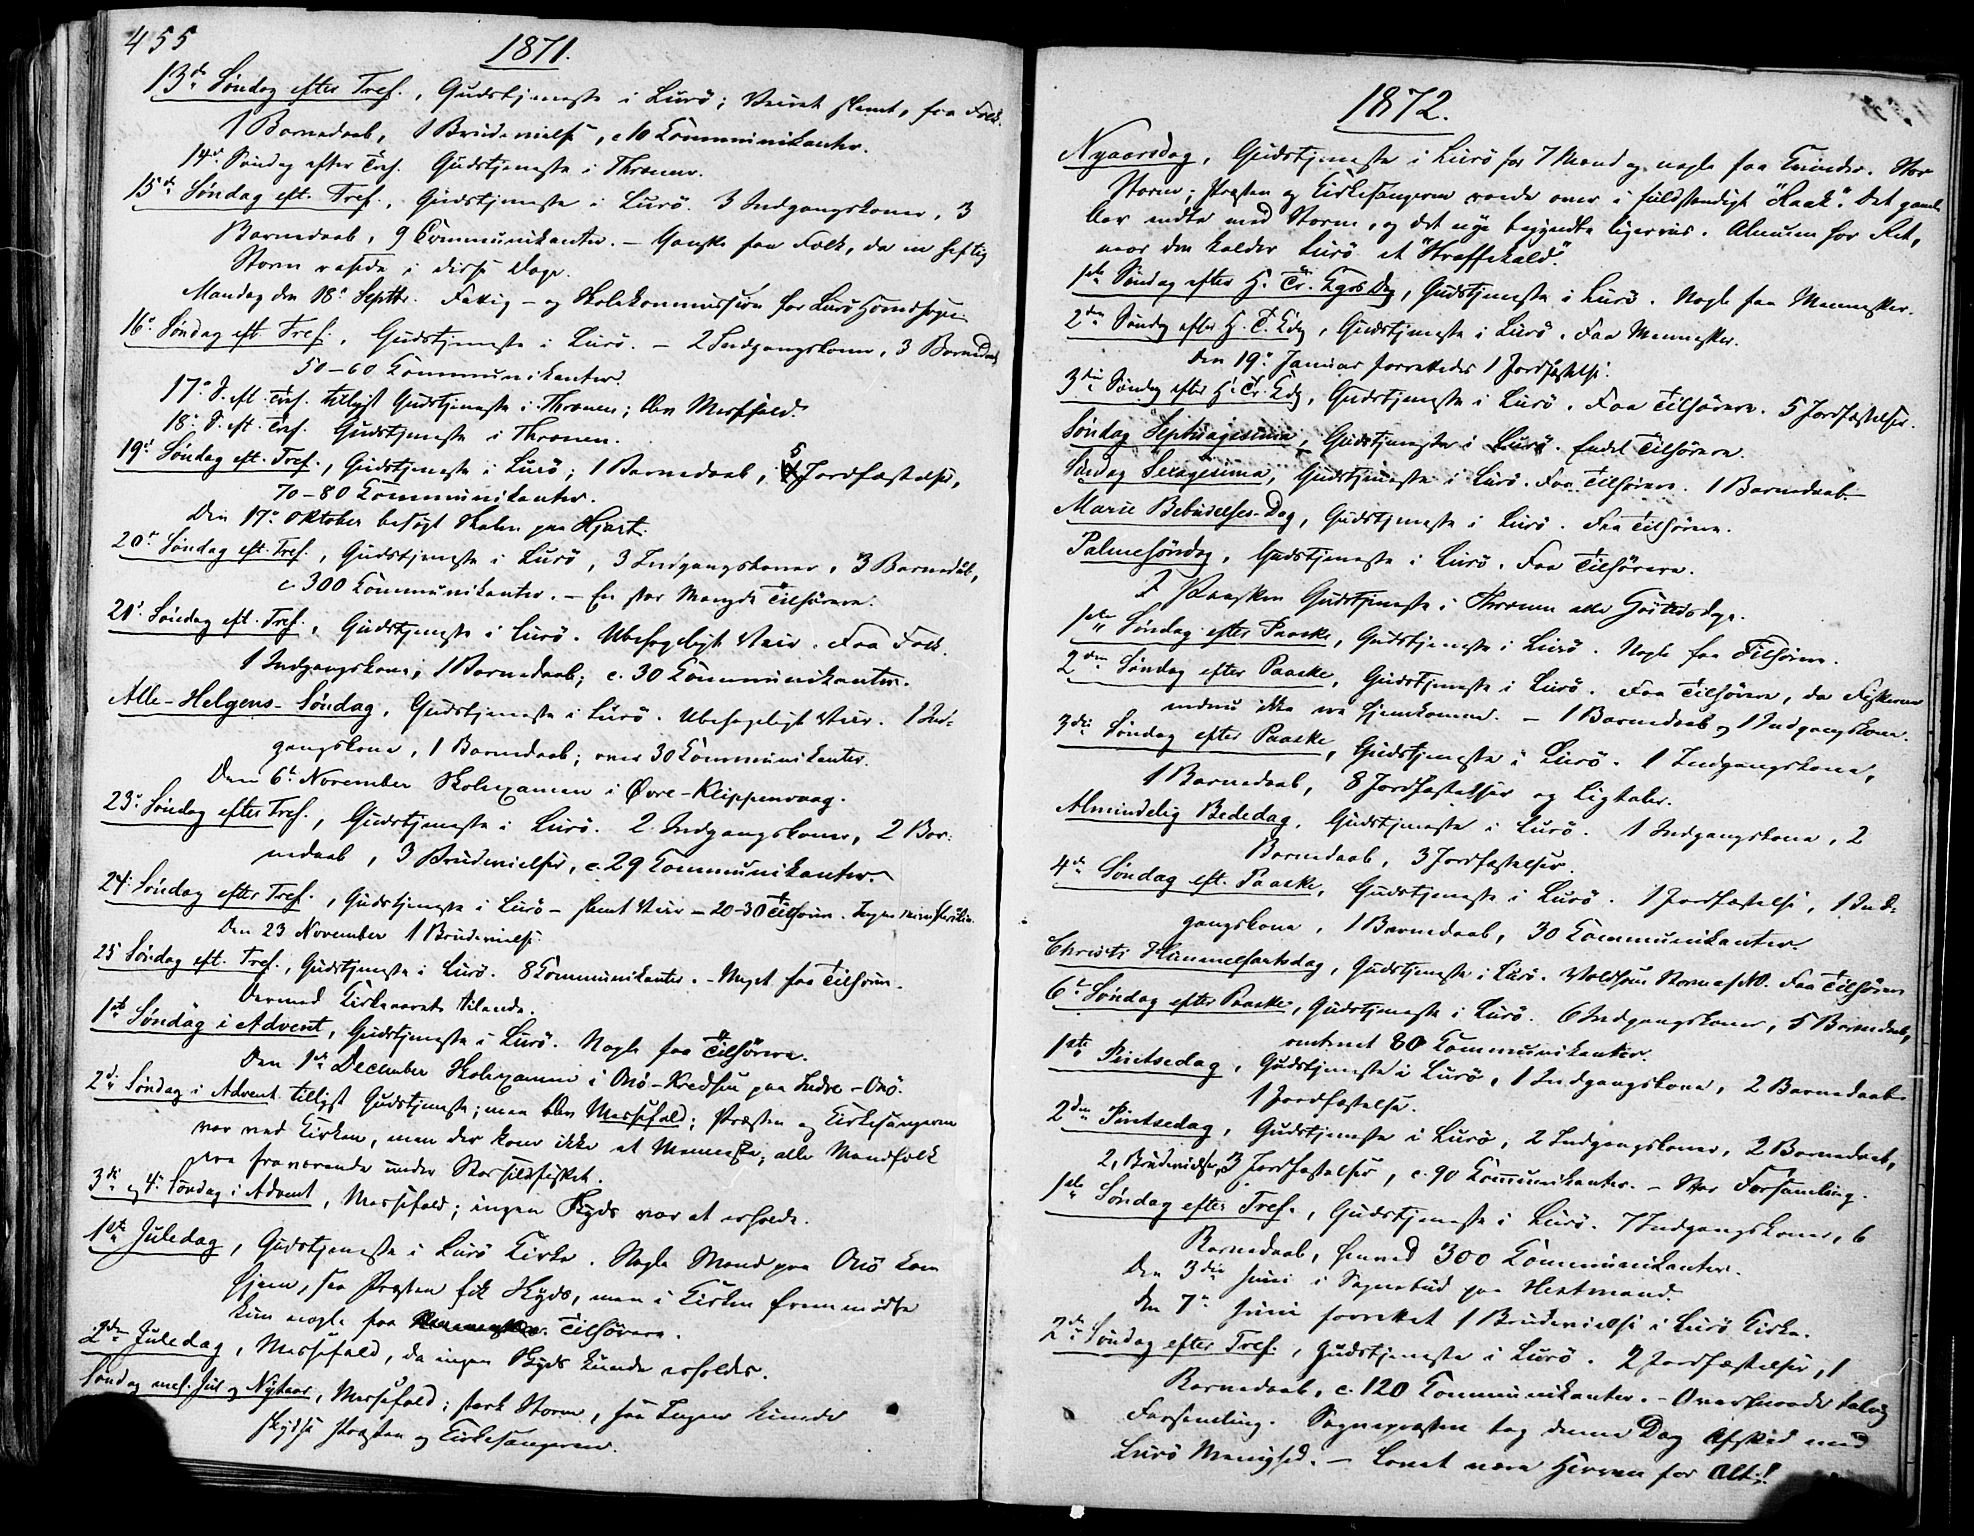 455
1871.
13de Søndag efter Tref., Gudstjeneste i Lurö; Veiret slemt, faa Folk.
1 Barnedaab, 1 Brudevielse, c. 10 Communikanter.
14de Søndag efter Tref. Gudstjeneste i Thrænen.
15de Søndag eft. Tref., Gudstjeneste i Lurö. 3 Indgangskoner, 3
Barnedaab, 9 Communikanter. – Ganske faa Folk, da en heftig
Storm rasede i disse Dage.
Mandag den 18de Septbr. Fattig- og Skolekommission for Lurö Hovedsogn
16de Søndag eft Tref., Gudstjeneste i Lurö. – 2 Indgangskoner, 3 Barnedaab
50–60 Communikanter.
17de S. eft Tref. tillyst Gudstjeneste i Thrænen; blev Messefald.
18de S. eft. Tref. Gudstjeneste i Thrænen.
19de Søndag eft. Tref., Gudstjeneste i Lurö; 1 Barnedaab, 5 Jordfæstelser,
70–80 Communikanter.
Den 17de Oktober besøgt Skolen paa Hjart.
20de Søndag eft. Tref., Gudstjeneste i Lurö, 3 Indgangskoner, 3 Barnedåb,
c. 300 Communikanter. – En stor Mængde Tilhörere.
21de Søndag eft. Tref., Gudstjeneste i Lurö. Ubehageligt Veir. Faa Folk.
1 Indgangskone, 1 Barnedaab; c. 30 Communikanter.
Alle-Helgens-Søndag, Gudstjeneste i Lurö. Ubehageligt Veir. 1 Ind-
gangskone, 1 Barnedaab; over 30 Communikanter.
Den 6te November Skolexamen i Øvre-Klippenvaag.
23de Søndag efter Tref., Gudstjeneste i Lurö. 2 Indgangskoner, 2 Bar-
nedaab, 3 Brudevielser, c. 29 Communikanter.
24de Søndag efter Tref., Gudstjeneste i Lurö – slemt Veir – 20–30 Tilhörere. Ingen
Den 23 November 1 Brudevielse.
25 Søndag eft. Tref., Gudstjeneste i Lurö. 8 Communikanter. – Meget faa Tilhörere.
Dermed Kirkeaaret tilende.
1ste Søndag i Advent, Gudstjeneste i Lurö. Nogle faa Tilhörere.
Den 1ste December Skolexamen i Onö-Kredsen paa Indre-Onö.
2den Søndag i Advent tillyst Gudstjeneste; men blev Messefald; Præsten og Kirkesangeren
var ved Kirken, men der kom ikke et Menneske; alle Mandfolk
vare fraværende under Storsildfisket.
3die og 4de Søndag i Advent, Messefald; ingen Skyds var at erholde.
1ste Juledag, Gudstjeneste i Lurö Kirke. Nogle Mænd paa Onö kom
hjem, saa Præsten fik Skyds, men i Kirken fremmødte
kun nogle faa Tilhörere.
2den Juledag, Messefald, da ingen Skyds kunde erholdes.
Søndag mel. Jul og Nytaar, Messefald; stærk Storm, saa Ingen kunde
skydse Præsten og Kirkesangeren.
1872.
Nyaarsdag, Gudstjeneste i Lurö for 7 Mænd og nogle faa Kvinder. Stor
Storm; Præsten og Kirkesangeren roede over i fuldstændigt "Raak". Det gamle
Aar endte med Storm, og det nye begyndte ligervis. Almuen har Ret,
naar den kalder Lurö et "Straffekald".
1ste Søndag efter H. Tr. Kgrs Dag, Gudstjeneste i Lurö. Nogle faa Mennesker.
2den Søndag efter H. T. Kdg, Gudstjeneste i Lurö. Faa Mennesker.
Den 19de Januar forrettedes 1 Jordfæstelse.
3die Søndag efter H. Tr. Kdg, Gudstjeneste i Lurö. Faa Tilhörere. 5 Jordfæstelser.
Søndag Septuagesima, Gudstjeneste i Lurö. Endel Tilhörere.
Søndag Sexagesima, Gudstjeneste i Lurö. Faa Tilhörere. 1 Barnedaab.
Marie Bebudelses-Dag, Gudstjeneste i Lurö. Faa Tilhörere.
Palmesöndag, Gudstjeneste i Lurö. Faa Tilhörere.
I Paasken Gudstjeneste i Thrænen alle Höitidsdage.
1ste Søndag efter Paaske, Gudstjeneste i Lurö. Nogle faa Tilhörere.
2den Søndag efter Paaske, Gudstjeneste i Lurö. Faa Tilhörere, da Fiskerne
endnu ikke ere hjemkomne. – 1 Barnedaab og 1 Indgangskone.
3die Søndag efter Paaske, Gudstjeneste i Lurö. 1 Indgangskone,
1 Barnedaab, 8 Jordfæstelser og Ligtaler.
Almindelig Bededag, Gudstjeneste i Lurö. 1 Indgangskone, 2
Barnedaab, 3 Jordfæstelser.
4de Søndag eft. Paaske, Gudstjeneste i Lurö. 1 Jordfæstelse, 1 Ind-
gangskone, 1 Barnedaab, 30 Communikanter.
Christi Himmelfartsdag, Gudstjeneste i Lurö. Voldsom Storm af NO. Faa Tilhörere
6te Søndag efter Paaske, Gudstjeneste i Lurö. 6 Indgangskoner, 5 Barnedaab,
omtrent 80 Communikanter.
1ste Pintsedag, Gudstjeneste i Lurö, 1 Indgangskone, 2 Barnedaab
1 Jordfæstelse.
2den Pintsedag, Gudstjeneste i Lurö, 2 Indgangskoner, 2 Barnedaab,
2 Brudevielser, 3 Jordfæstelser, c. 90 Communikanter. – Stor Forsamling.
1ste Søndag efter Tref., Gudstjeneste i Lurö. 7 Indgangskoner, 6
Barnedaab, henved 300 Communikanter.
Den 3die Juni i Sognebud paa Hestmand.
Den 7de Juni forrettet 1 Brudevielse i Lurö Kirke.
2den Søndag efter Tref., Gudstjeneste i Lurö. 2 Jordfæstelser, 1
Barnedaab, c. 120 Communikanter. – Overmaade talrig
Forsamling. Sognepræsten tog denne Dag Afsked med
Lurö Menighed. – Lovet være Herren for Alt!